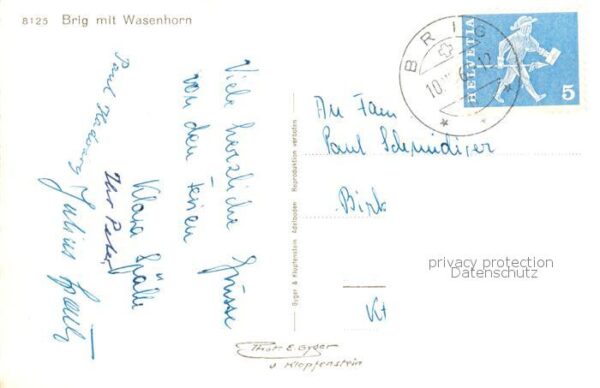 8125 Brig mit Wasenhorn
Viele herzliche Grüsse
von den Ferien
Klara Späth
Ihr Peter
Julius Späth
Paul
Gyger & Klopfenstein Adelboden Reproduktion verboten
BRIG
10
12
HELVETIA
5
An Fam
Paul Schmidiger
Birk
Kt
privacy protection
Datenschutz
Phot E. Gyger
u Klopfenstein